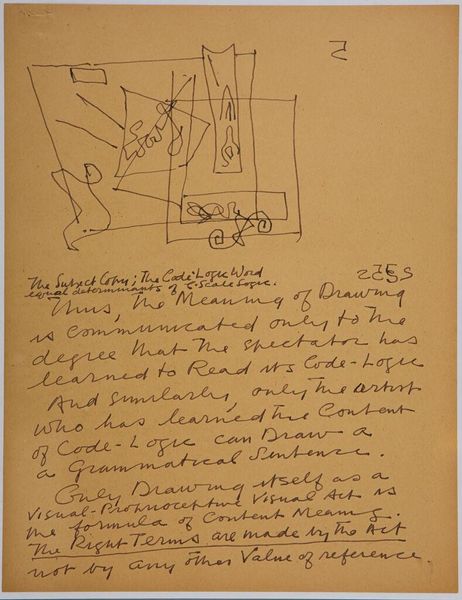 5
The Subject Copy; The Code-Logic Word
equal determinants of C-Scale Logic.
Thus, the Meaning of Drawing
is communicated only to the
degree that the spectator has
learned to Read its Code-Logic
And similarly, only the artist
who has learned the Content
of Code-Logic can Draw a
a Grammatical Sentence.
Only Drawing itself as a
Visual-Proprioceptive Visual Act is
the formula of Content Meaning.
The Right Terms are made by the Act
not by any other Value of reference